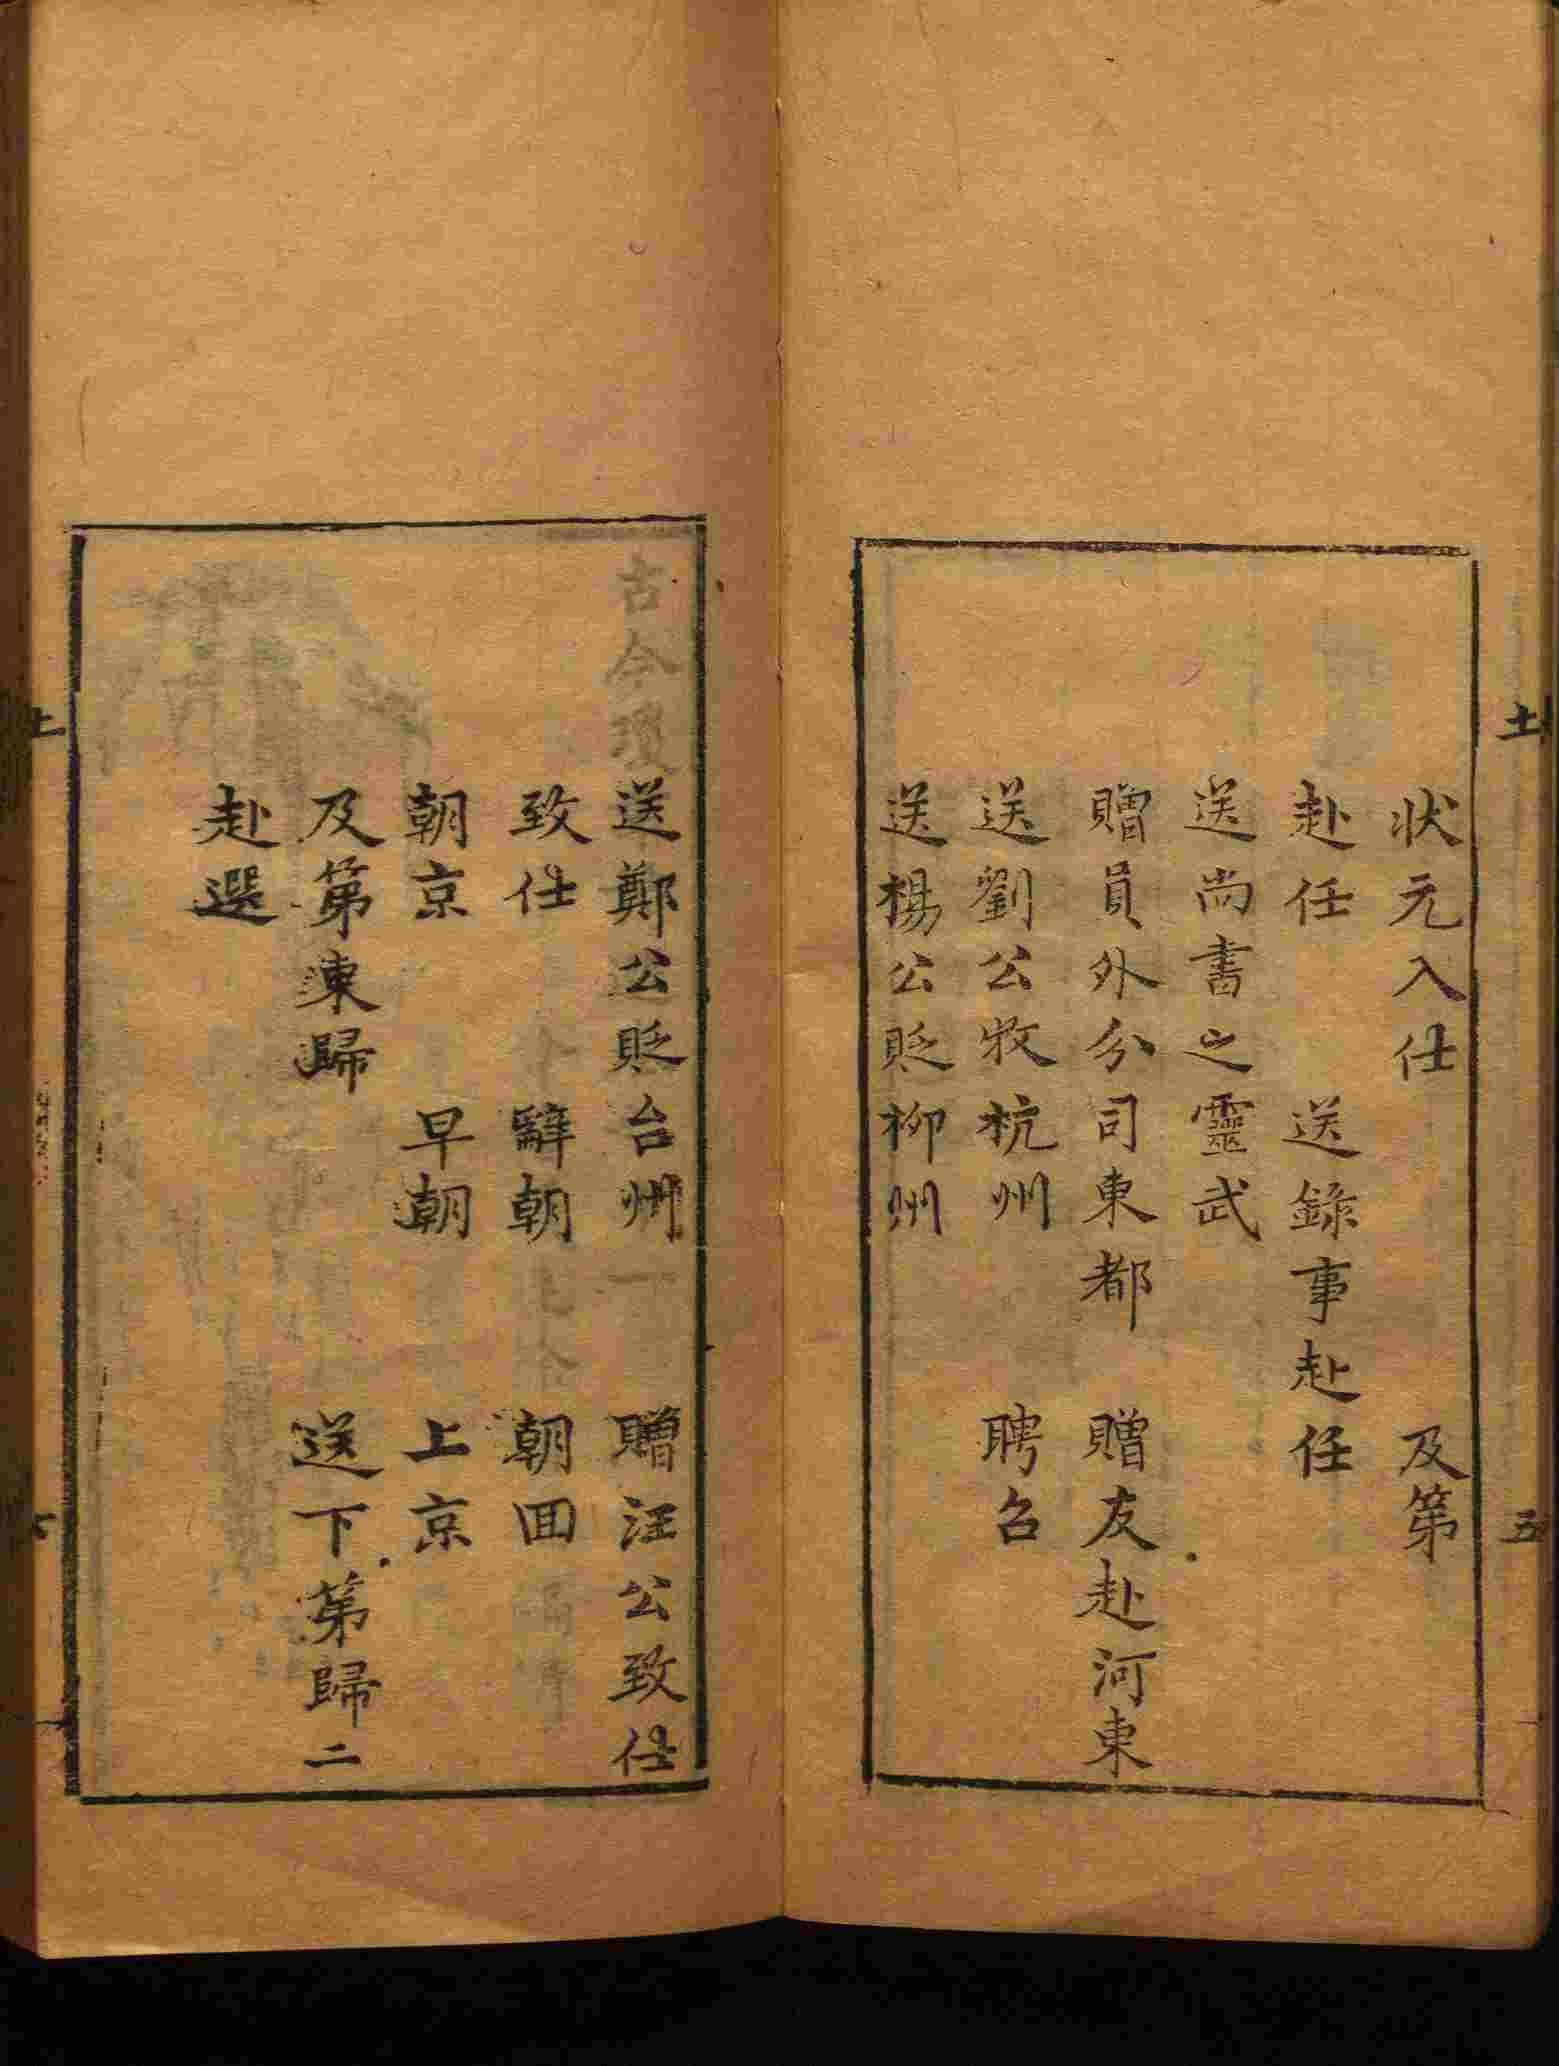 狀元入仕 及第
赴任 送錄事赴任
送尚書之靈武
贈員外分司東都 贈友赴河東
送劉公牧杭州 聘召
送楊公貶柳州
土 五
送鄭公貶台州 贈汪公致仕
致仕 辭朝 朝回
朝京 早朝 上京
及第東歸 送下第歸二
赴選